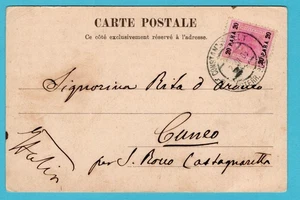 CARTE POSTALE
Ce côté exclusivement réservé à l'adresse.
20 PARA 20
Signorina Rita d'
Cuneo
per S. Rocco Castagnaretta
Italia